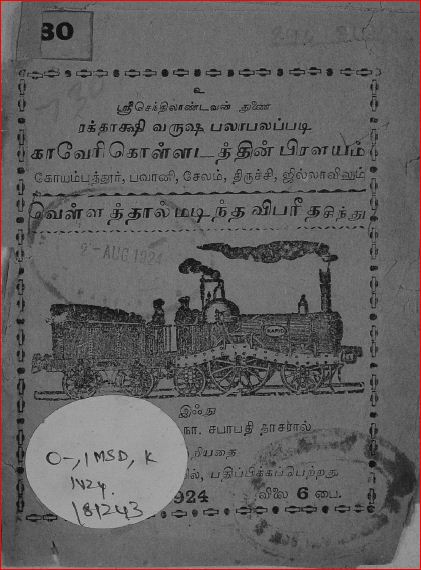 30
உ
ஸ்ரீசெந்திலாண்டவன் துணை
ரக்தாக்ஷி வருஷ பலாபலப்படி
காவேரிகொள்ளடத்தின் பிரளயம்
கோயம்பத்தூர், பவானி, சேலம், திருச்சி, ஜில்லாவிலும்
வெள்ளத்தால்மடிந்த விபரீதசிந்து
-AUG 1924
RAPID
இஃது
நா. சபாபதி தாசரால்
றியதை
ல், பதிப்பிக்கப்பெற்றது
O-,1MSD,K
924 விலை 6 பை.
N24.
181243